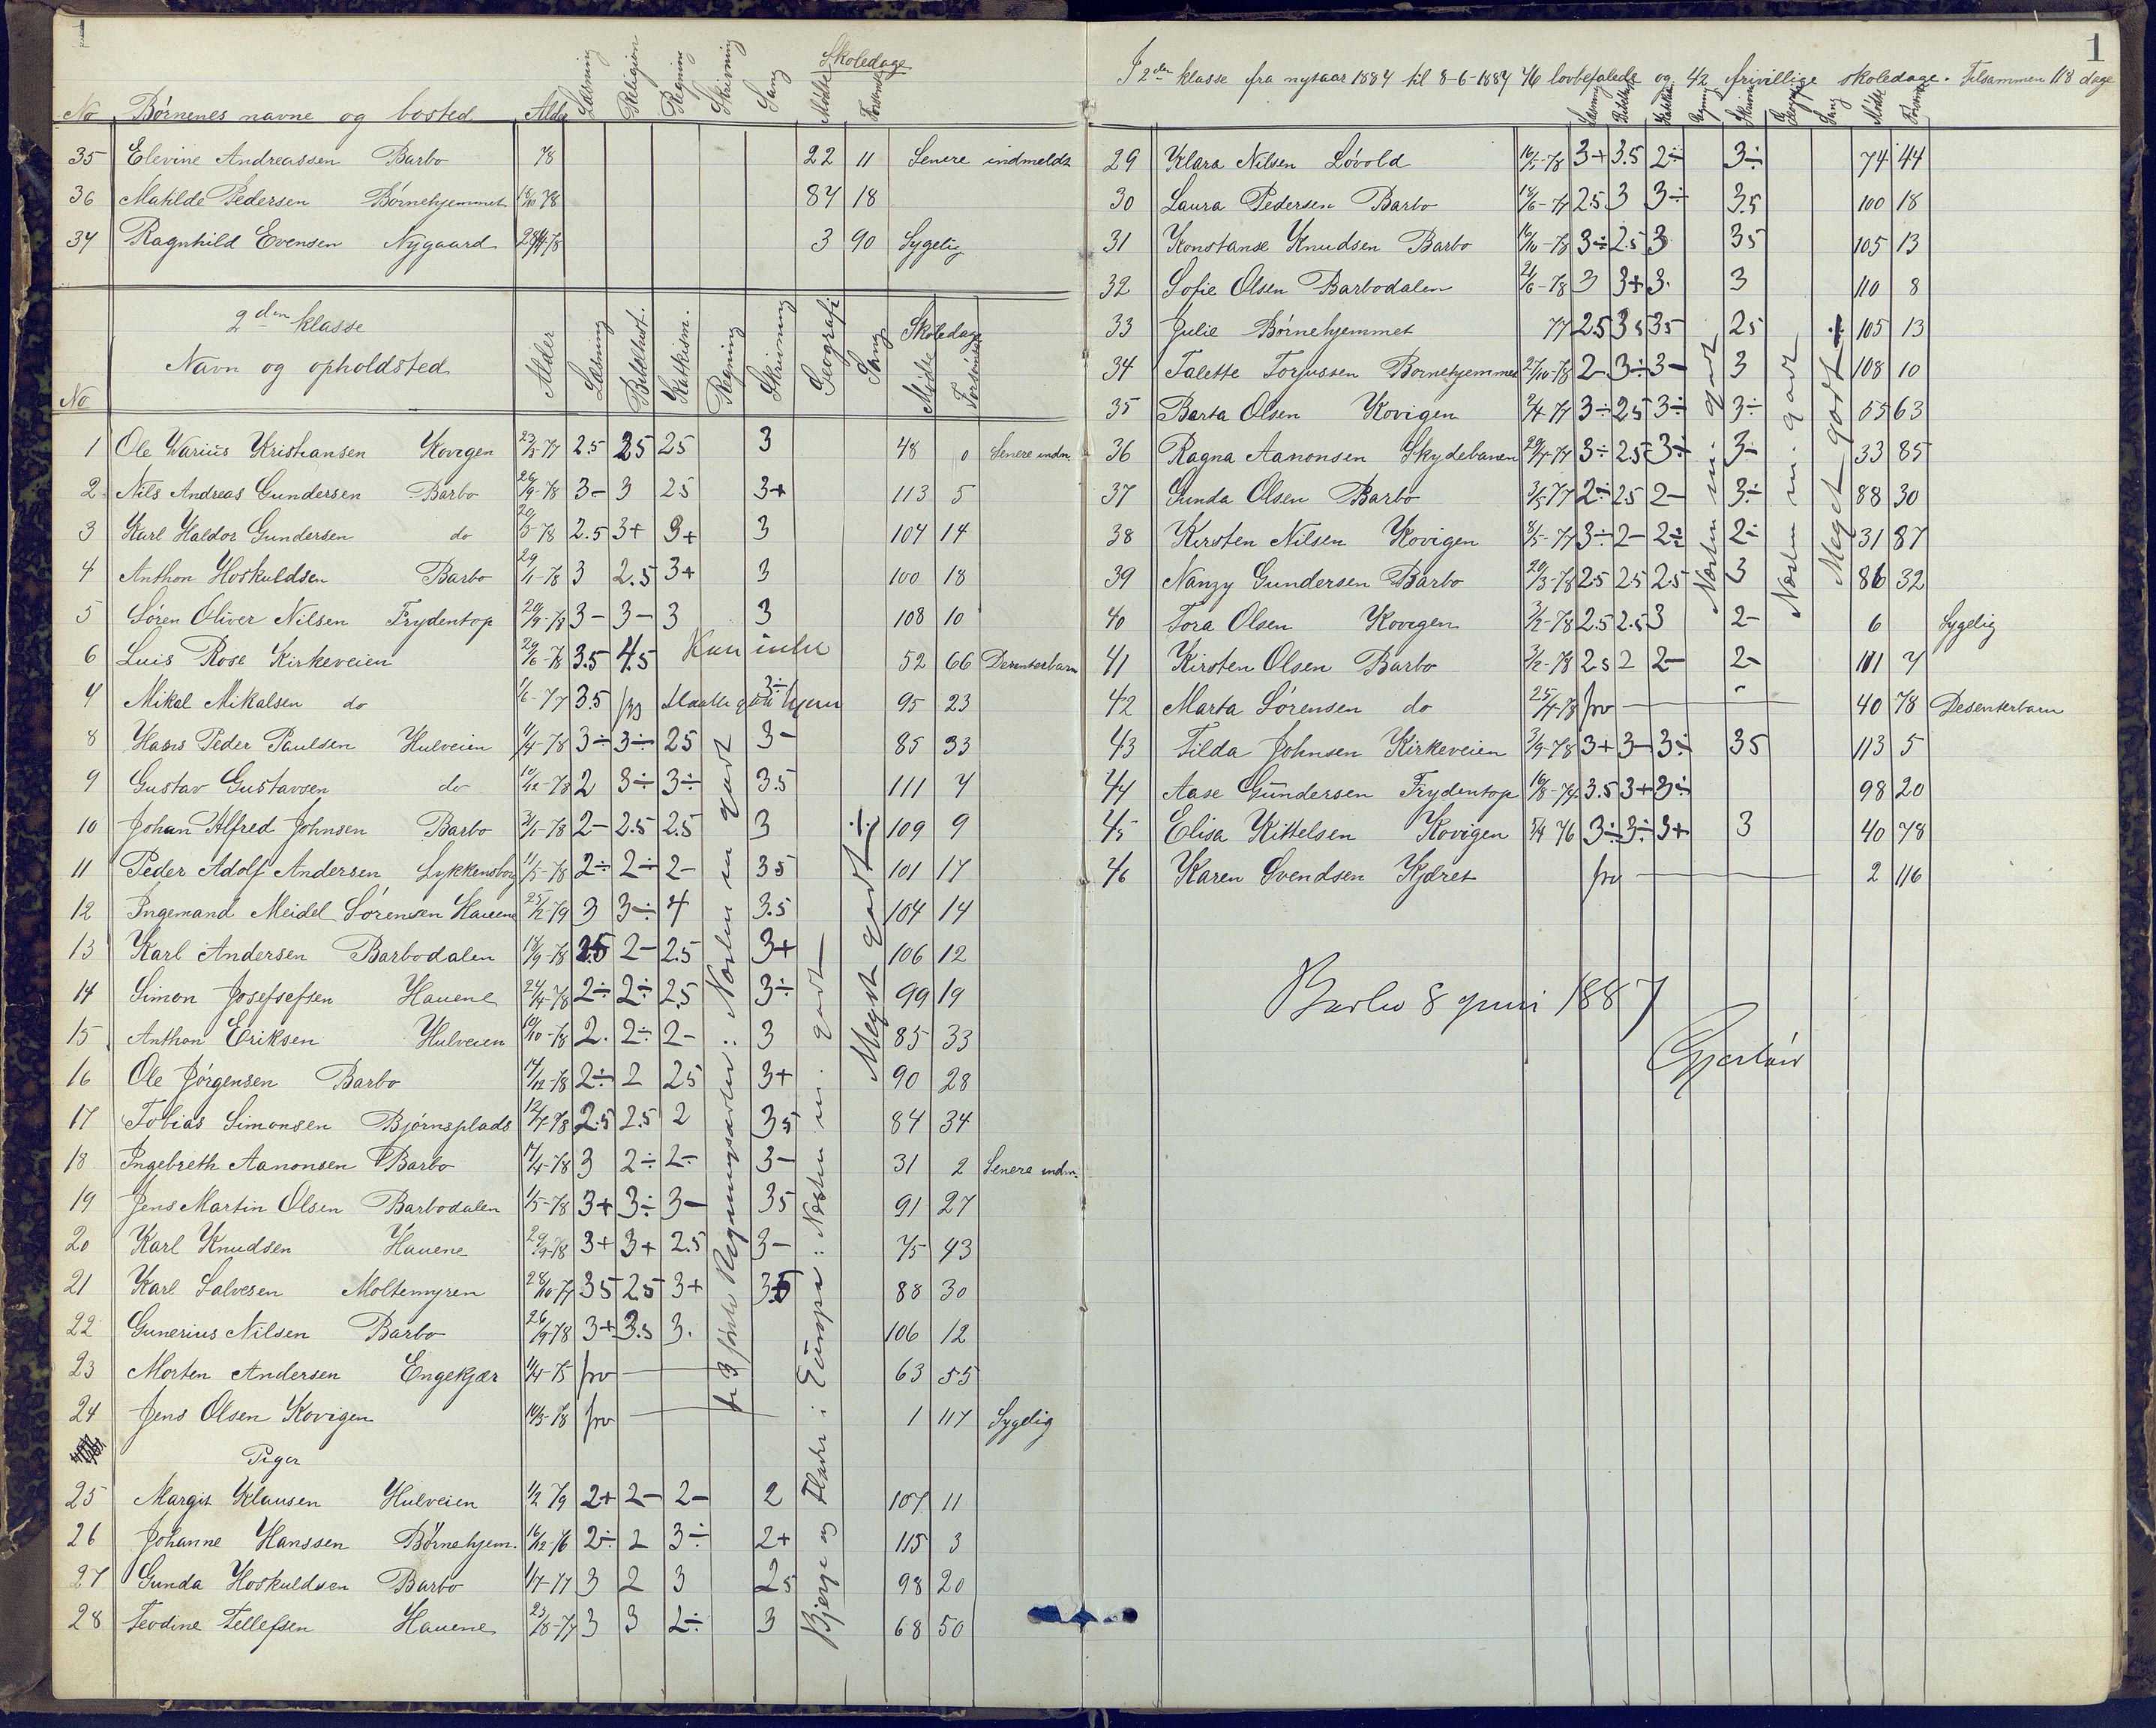 1
Skoledage
No Børnenes navne og bosted Alder Læsning Religion Regning Skrivning Sang Mødte Forsømte
35 Elevine Andreassen Barbo 78 22 11 Senere indmeldt
36 Matilde Pedersen Børnehjemmet 78 87 18
37 Ragnhild Evensen Nygaard 78 3 90 Sygelig
2den klasse
Navn og opholdsted
No Alder Læsning Bibelhist. Katkism. Regning Skrivning Geografi Sang Skoledage Mødte Forsømte
1 Ole Marius Kristiansen Kovigen 23/5-77 2.5 25 25 3 48 0 Senere indm.
2 Nils Andreas Gundersen Barbo 26/9-78 3- 3 25 3+ 113 5
3 Karl Haldor Gundersen do 20/5-78 2.5 3+ 3+ 3 104 14
4 Anthon Hoskuldsen Barbo 29/1-78 3 2.5 3+ 3 100 18
5 Søren Oliver Nilsen Frydentop 3- 3- 3 3 108 10
6 Luis Rose Kirkeveien 29/6-78 3.5 4.5 Kan intet 52 66 Desenterbarn
7 Mikal Mikalsen do 1/6-77 3.5 3÷ 95 23
8 Hans Peder Paulsen Hulveien 11/4-78 3÷ 3÷ 25 3- 85 33
9 Gustav Gustavsen do 10/12-78 2 3÷ 3÷ 3.5 111 7
10 Johan Alfred Johnsen Barbo 3/1-78 2- 2.5 2.5 3 109 9
11 Peder Adolf Andersen Lykkensborg 11/5-78 2÷ 2÷ 2- 35 101 17
12 Ingemand Meidel Sørensen Hauene 25/2-79 3 3÷ 4 3.5 104 14
13 Karl Andersen Barbodalen 18/9-78 2.5 2- 2.5 3+ 106 12
14 Simon Josefsefsen Hauene 24/4-78 2÷ 2÷ 2.5 3÷ 99 19
15 Anthon Eriksen Hulveien 10/10-78 2. 2÷ 2- 3 85 33
16 Ole Jørgensen Barbo 17/12-78 2÷ 2 25 3+ 90 28
17 Tobias Simonsen Bjørnsplads 2.5 2.5 2 35 84 34
18 Ingebreth Aanonsen Barbo 17/4-78 3 2÷ 2- 3- 31 2 Senere indm.
19 Jens Martin Olsen Barbodalen 1/5-78 3+ 3÷ 3- 35 91 27
20 Karl Knudsen Hauene 3+ 3+ 2.5 3- 75 43
21 Karl Salvesen Moltemyren 28/10-77 35 25 3+ 35 88 30
22 Gunerius Nilsen Barbo 26/9-78 3+ 3.5 3. 106 12
23 Morten Andersen Engekjær 11/4-75 frv 63 55
24 Jens Olsen Kovigen 78 frv 1 117 Sygelig
Piger
25 Margit Klausen Hulveien 1/2 79 2+ 2- 2- 2 107 11
26 Johanne Hanssen Børnehjem. 16/12-76 2÷ 2 3÷ 2+ 115 3
27 Gunda Hoskuldsen Barbo 1/7-77 3 2 3 25 98 20
28 Teodine Tellefsen Hauene 23/8-77 3 3 2÷ 3 68 50
de 3 første Regningsarter: Næsten m godt
Bjerge og Floder i Europa: Næsten m. godt
Meget godt ./.
1
I 2den klasse fra nysaar 1887 til 8-6-1887 76 lovbefalede og 42 frivillige skoledage. Tilsammen 118 dage
Læsning Bibelhist Katekis Regning Skrivn Geografi Sang Mødte Forsømte
29 Klara Nilsen Løvold 16/5-78 3+ 3.5 2÷ 3÷ 74 44
30 Laura Pedersen Barbo 18/6-77 2.5 3 3÷ 3.5 100 18
31 Konstanse Knudsen Barbo 16/10-78 3÷ 2.5 3 35 105 13
32 Sofie Olsen Barbodalen 21/6-78 3 3+ 3. 3 110 8
33 Julie Børnehjemmet 77 25 35 35 25 105 13
34 Talette Torjussen Bornehjemmet 27/10-78 2- 3÷ 3- 3 108 10
35 Barta Olsen Kovigen 2/4 77 3÷ 25 3÷ 3÷ 55 63
36 Ragna Aanonsen Skydebanen 3÷ 2.5 3÷ 3- 33 85
37 Gunda Olsen Barbo 3/5 77 2÷ 25 2- 3÷ 88 30
38 Kirsten Nilsen Kovigen 8/5-77 3÷ 2- 2÷ 2÷ 31 87
39 Nanzy Gundersen Barbo 20/3-78 25 25 2.5 3 86 32
40 Tora Olsen Kovigen 3/12-78 2.5 2.5 3 2- 6 Sygelig
41 Kirsten Olsen Barbo 3/12-78 25 2 2- 2- 111 7
42 Marta Sørensen do 25/4-78 frv 40 78 Desenterbarn
43 Tilda Johnsen Kirkeveien 3/9-78 3+ 3- 3÷ 35 113 5
44 Aase Gundersen Frydentop 3.5 3+ 3÷ 98 20
45 Elisa Kittelsen Kovigen 5/4 76 3÷ 3÷ 3+ 3 40 78
46 Karen Svendsen Kjæret frv 2 116
Næsten m. godt
Næsten m. godt
Meget godt ./.
Barbo 8 juni 1887